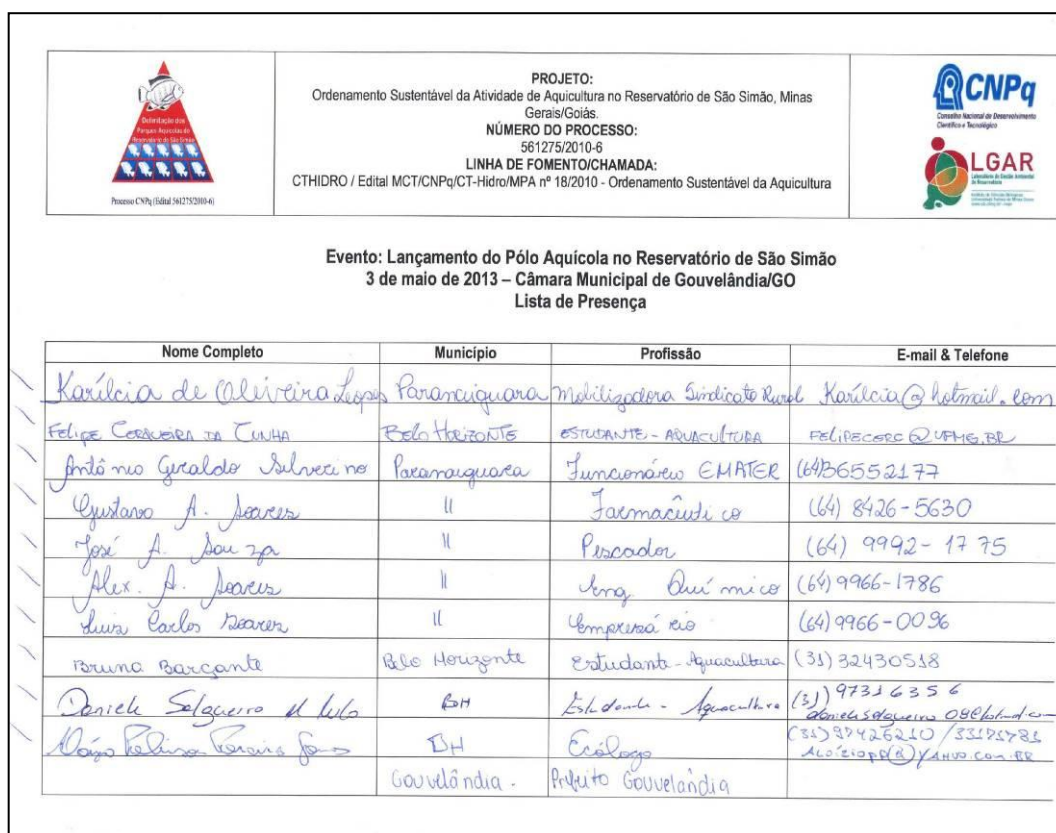 Delimitação dos
Parques Aquícolas do
Reservatório de São Simão
Processo CNPq (Edital 561275/2010-6)
PROJETO:
Ordenamento Sustentável da Atividade de Aquicultura no Reservatório de São Simão, Minas
Gerais/Goiás.
NÚMERO DO PROCESSO:
561275/2010-6
LINHA DE FOMENTO/CHAMADA:
CTHIDRO / Edital MCT/CNPq/CT-Hidro/MPA nº 18/2010 - Ordenamento Sustentável da Aquicultura
CNPq
Conselho Nacional de Desenvolvimento
Científico e Tecnológico
LGAR
Laboratório de Gestão Ambiental
de Reservatórios
Evento: Lançamento do Pólo Aquícola no Reservatório de São Simão
3 de maio de 2013 – Câmara Municipal de Gouvelândia/GO
Lista de Presença
Nome Completo Município Profissão E-mail & Telefone
Karílcia de Oliveira Lopes Paranaiguara Mobilizadora Sindicato Rural Karilcia@hotmail.com
FELIPE CERQUEIRA DA CUNHA BELO HORIZONTE ESTUDANTE - AQUACULTURA FELIPECERC@UFMG.BR
Antônio Geraldo Silverino Paranaiguara Funcionário EMATER (64)36552177
Gustavo A. Soares " Farmacêutico (64) 8426-5630
José A. Souza " Pescador (64) 9992-1775
Alex. A. Soares " Eng. Químico (64) 9966-1786
Luiz Carlos Soares " Empresário (64) 9966-0096
Bruna Barçante Belo Horizonte Estudante - Aquacultura (31) 32430518
Daniele Salgueiro de Melo BH Estudante - Aquacultura (31) 97316356
BH Ecólogo (31) 97426210 /
Gouvelândia - Prefeito Gouvelândia